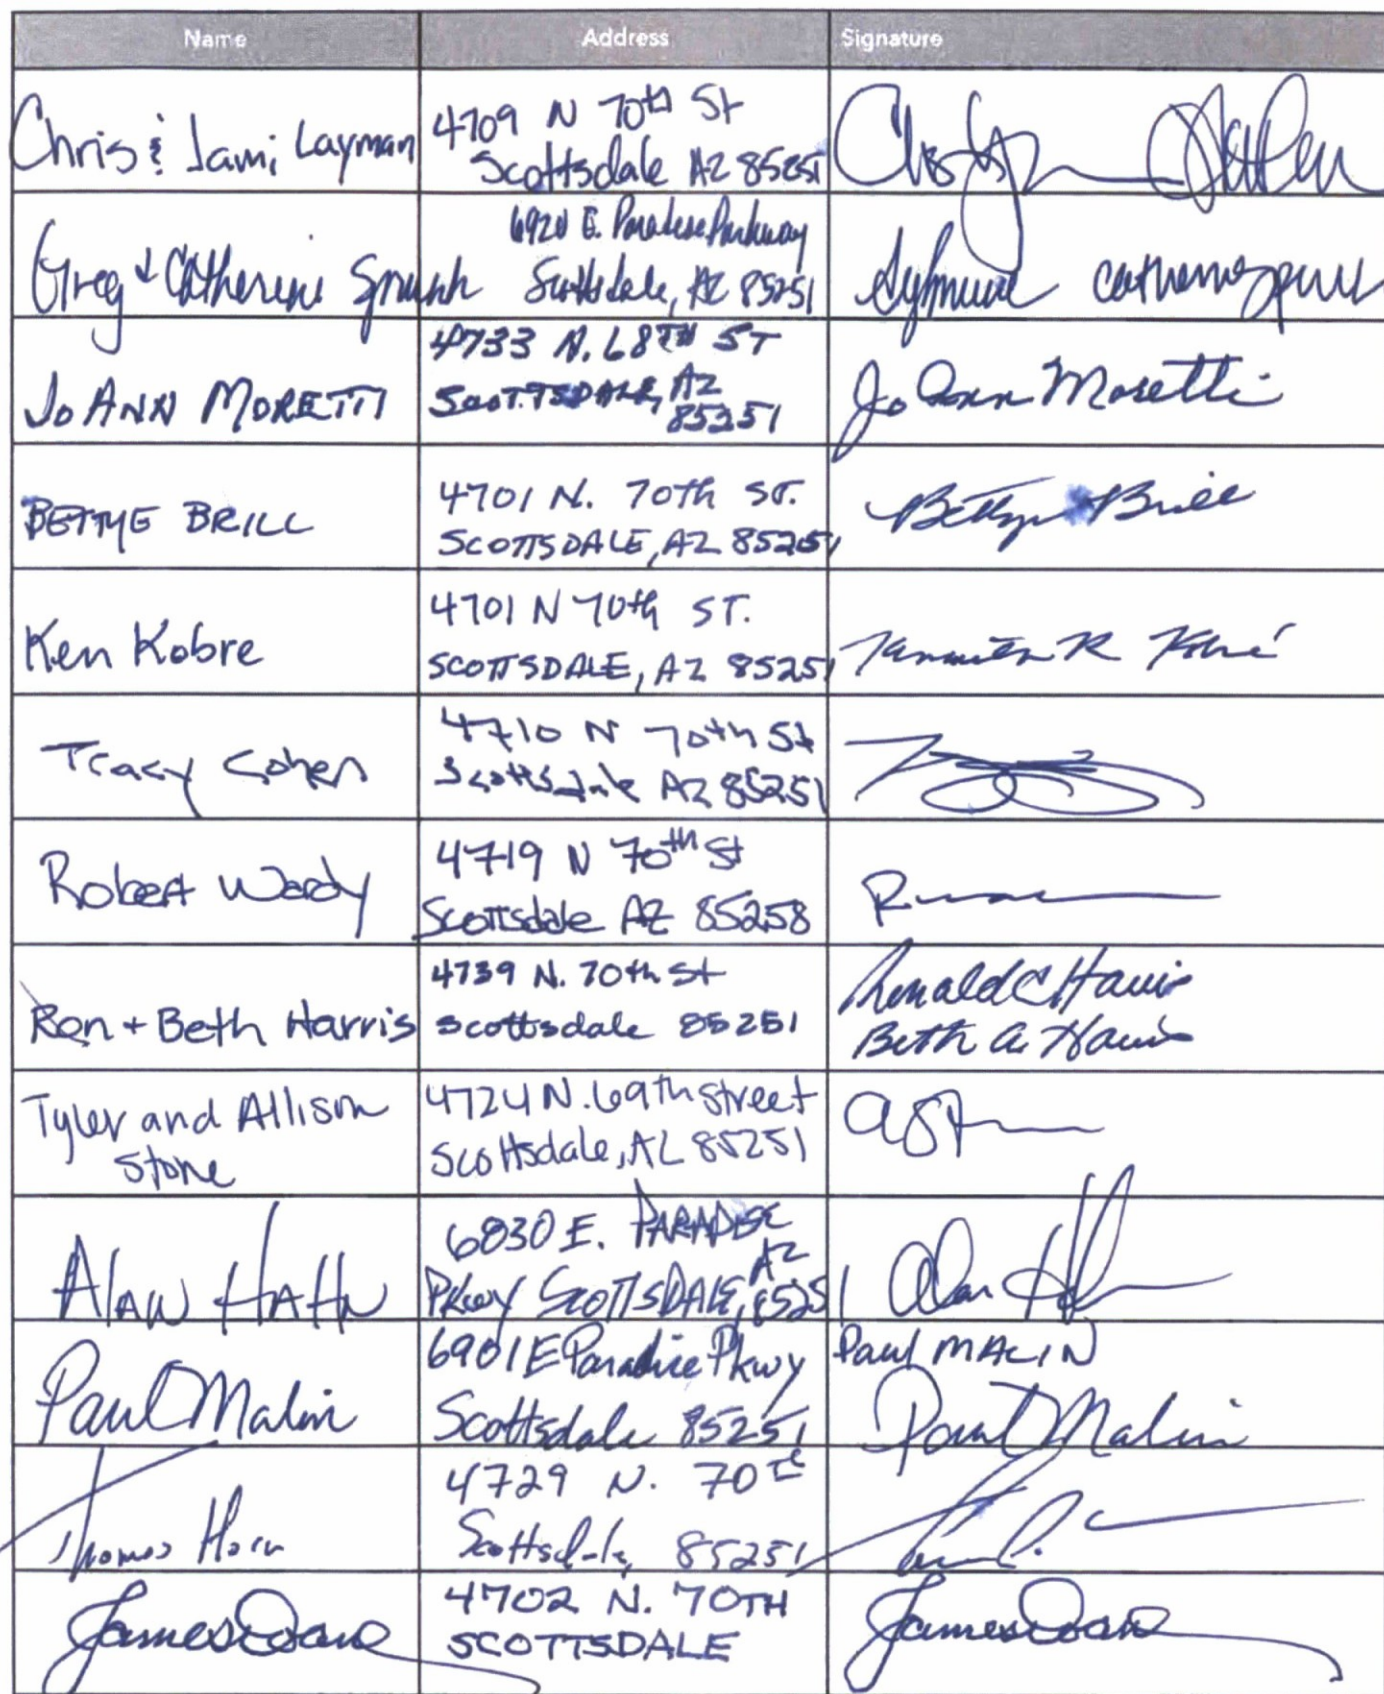 Name Address Signature
Chris & Jami Layman
4709 N 70th St
Scottsdale AZ 85251
Greg + Catherine
6920 E. Paradise Parkway
Scottsdale, AZ 85251
JoANN MORETTI
4733 N. 68TH ST
SCOTTSDALE, AZ
85251
JoAnn Moretti
BETTYE BRILL
4701 N. 70th ST.
SCOTTSDALE, AZ 85251
Bettye Brill
Ken Kobre
4701 N 70th ST.
SCOTTSDALE, AZ 85251
Tracy Cohen
4710 N 70th St
Scottsdale AZ 85251
Robert Wordy
4719 N 70th St
Scottsdale AZ 85258
Ron + Beth Harris
4739 N. 70th St
Scottsdale 85251
Ronald C Harris
Beth A. Harris
Tyler and Allison
Stone
4724 N. 69th street
Scottsdale, AZ 85251
Alan HAHN
6830 E. PARADISE
Pkwy SCOTTSDALE, AZ 85251
Alan
Paul Malin
6901 E Paradise Pkwy
Scottsdale 85251
Paul MALIN
Paul Malin
Thomas Horn
4729 N. 70th
Scottsdale, 85251
James Doane
4702 N. 70TH
SCOTTSDALE
James Doane